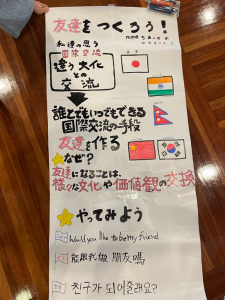 友達をつくろう!
私達の思う
国際交流
違う文化
との
交流
誰とでもいつでもできる
国際交流の手段
友達を作る
なぜ?
友達になることは、
様々な文化や価値観の交換
やってみよう
Would you like to be my friend
能跟我做 朋友嗎
친구가 되어줄래요?